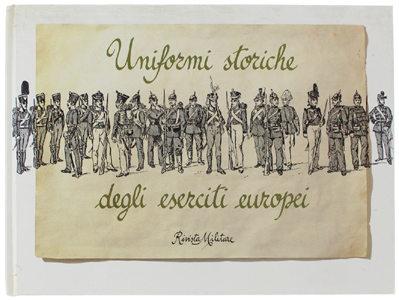 Uniformi storiche
degli eserciti europei
Rivista Militare